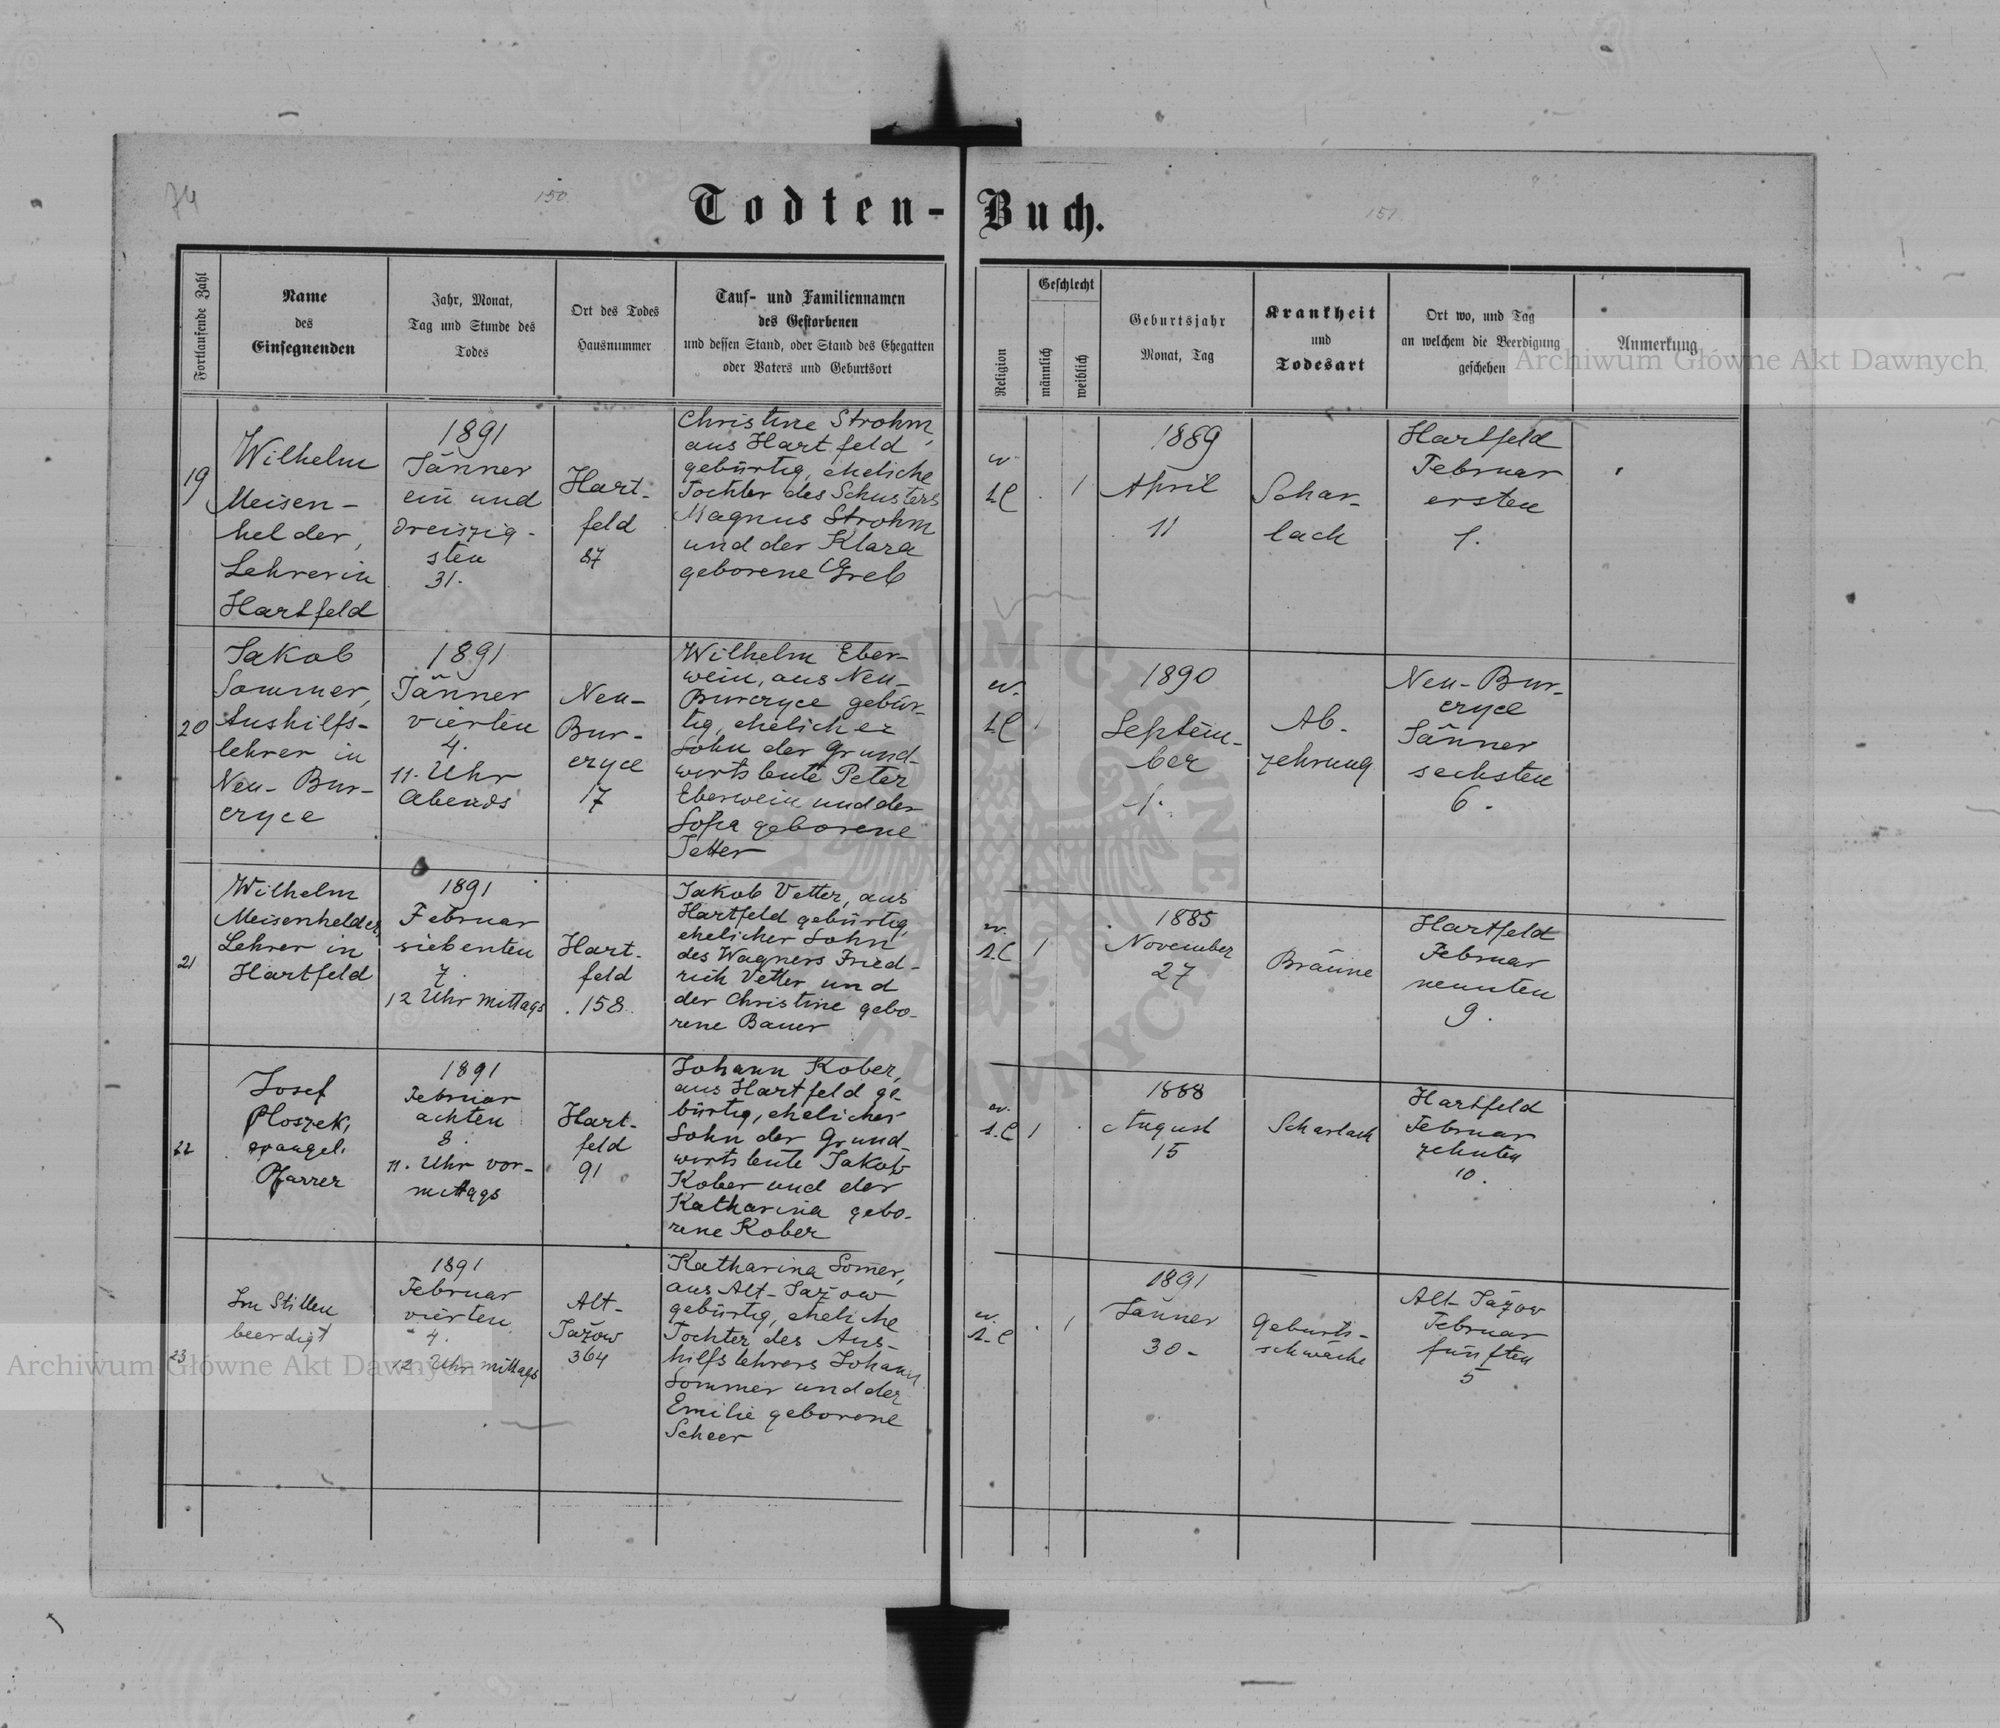 74
150
151
Todten-Buch.
Fortlaufende Zahl
Name
des
Einsegnenden
Jahr, Monat,
Tag und Stunde des
Todes
Ort des Todes
Hausnummer
Tauf- und Familiennamen
des Gestorbenen
und dessen Stand, oder Stand des Ehegatten
oder Vaters und Geburtsort
Religion
Geschlecht
männlich
weiblich
Geburtsjahr
Monat, Tag
Krankheit
und
Todesart
Ort wo, und Tag
an welchem die Beerdigung
geschehen
Anmerkung
Archiwum Główne Akt Dawnych
19
Wilhelm
Meisen-
helder,
Lehrer in
Hartfeld
1891
Jänner
ein und
dreiszig-
sten
31.
Hart-
feld
87
Christine Strohm,
aus Hartfeld
gebürtig, eheliche
Tochter des Schusters
Magnus Strohm
und der Klara
geborene Greb
1
1889
April
11
Schar-
lach
Hartfeld
Februar
ersten
1.
20
Jakob
Sommer,
Aushilfs-
lehrer in
Neu-Bur-
czyce
1891
Jänner
vierten
4.
11. Uhr
Abends
Neu-
Bur-
czyce
17
Wilhelm Eber-
wein, aus Neu-
Burczyce gebür-
tig, ehelicher
Sohn der Grund-
wirtsleute Peter
Eberwein und der
Sofia geborene
Jetter
1
1890
Septem-
ber
1.
Ab-
zehrung
Neu-Bur-
czyce
Jänner
sechsten
6.
21
Wilhelm
Meisenhelder,
Lehrer in
Hartfeld
1891
Februar
siebenten
7.
12 Uhr mittags
Hart-
feld
158
Jakob Vetter, aus
Hartfeld gebürtig,
ehelicher Sohn
des Wagners Fried-
rich Vetter und
der Christine gebo-
rene Bauer
1
1885
November
27
Bräune
Hartfeld
Februar
neunten
9.
22
Josef
Ploszek,
evangel.
Pfarrer
1891
Februar
achten
8.
11. Uhr vor-
mittags
Hart-
feld
91
Johann Kober,
aus Hartfeld ge-
bürtig, ehelicher
Sohn der Grund-
wirtsleute Jakob
Kober und der
Katharina gebo-
rene Kober
1
1888
August
15
Scharlach
Hartfeld
Februar
zehnten
10.
23
Im Stillen
beerdigt
1891
Februar
vierten
4.
12 Uhr mittags
Alt-
Jažow
364
Katharina Somer,
aus Alt-Jažow
gebürtig, eheliche
Tochter des Aus-
hilfslehrers Johann
Sommer und der
Emilie geborene
Scheer
1
1891
Jänner
30-
Geburts-
schwäche
Alt-Jažow
Februar
fünften
5
Archiwum Główne Akt Dawnych